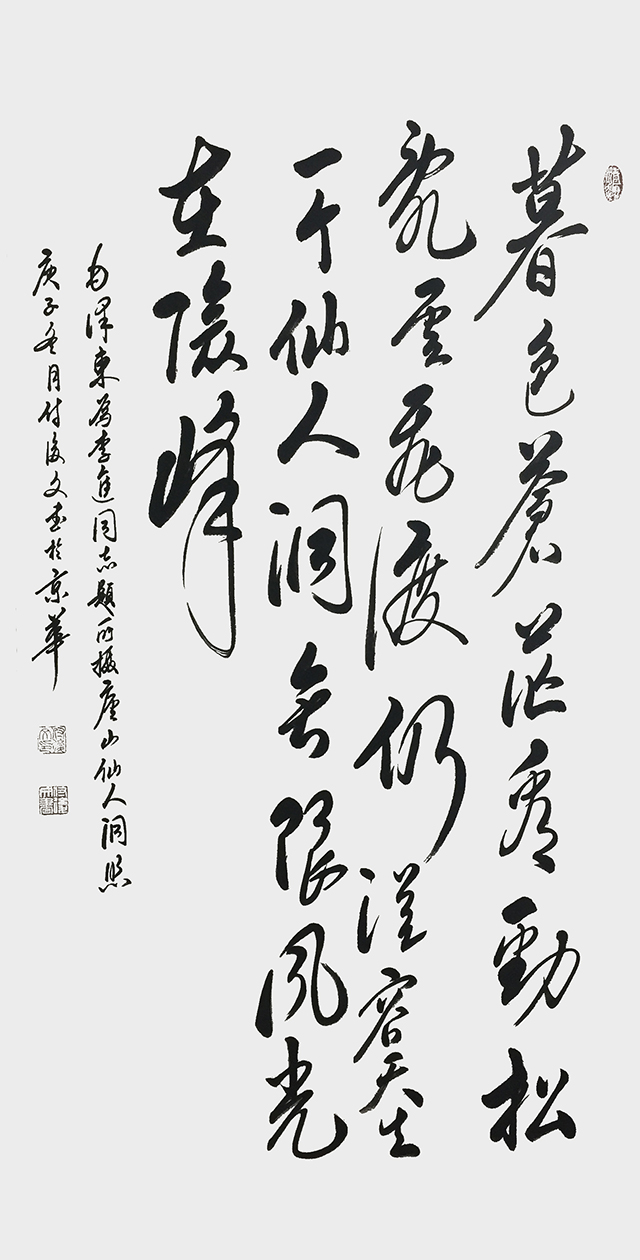 暮色蒼茫看勁松
亂雲飛渡仍從容天生
一个仙人洞無限風光
在險峰
毛澤東為李進同志題所攝廬山仙人洞照
庚子冬月付文書於京華